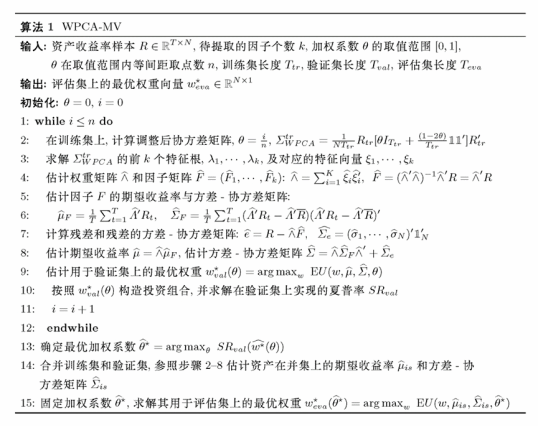 算法 1 WPCA-MV
输入: 资产收益率样本 R ∈ ℝ^{T×N}, 待提取的因子个数 k, 加权系数 θ 的取值范围 [0, 1],
θ 在取值范围内等间距取点数 n, 训练集长度 T_{tr}, 验证集长度 T_{val}, 评估集长度 T_{eva}
输出: 评估集上的最优权重向量 w^⋆_{eva} ∈ ℝ^{N×1}
初始化: θ = 0, i = 0
1: while i ≤ n do
2: 在训练集上, 计算调整后协方差矩阵, θ = \frac{i}{n}, Σ^{tr}_{WPCA} = \frac{1}{NT_{tr}} R_{tr}[θI_{T_{tr}} + \frac{(1−2θ)}{T_{tr}} 𝟙𝟙′]R′_{tr}
3: 求解 Σ^{tr}_{WPCA} 的前 k 个特征根, λ_1, ⋯, λ_k, 及对应的特征向量 ξ_1, ⋯, ξ_k
4: 估计权重矩阵 \hat{∧} 和因子矩阵 \hat{F} = (\hat{F}_1, ⋯, \hat{F}_k): \hat{∧} = ∑^K_{i=1} \hat{ξ}_i\hat{ξ}′_i, \hat{F} = (\hat{∧}′\hat{∧})^{−1}\hat{∧}′R = \hat{∧}′R
5: 估计因子 F 的期望收益率与方差 - 协方差矩阵:
6: \hat{μ}_F = \frac{1}{T} ∑^T_{t=1} \hat{Λ}′R_t, \hat{Σ}_F = \frac{1}{T} ∑^T_{t=1}(\hat{Λ}′R_t − \overline{\hat{Λ}′R})(\hat{Λ}′R_t − \overline{\hat{Λ}′R})′
7: 计算残差和残差的方差 - 协方差矩阵: \hat{ϵ} = R − \hat{∧}\hat{F}, \hat{Σ}_e = (\hat{σ}_1, ⋯, \hat{σ}_N)′𝟙′_N
8: 估计期望收益率 \hat{μ} = \hat{∧}\hat{μ}_F, 估计方差 - 协方差矩阵 \hat{Σ} = \hat{∧}\hat{Σ}_F\hat{∧}′ + \hat{Σ}_e
9: 估计用于验证集上的最优权重 w^⋆_{val}(θ) = arg max_w EU(w, \hat{μ}, \hat{Σ}, θ)
10: 按照 w^⋆_{val}(θ) 构造投资组合, 并求解在验证集上实现的夏普率 SR_{val}
11: i = i + 1
12: endwhile
13: 确定最优加权系数 \hat{θ}^⋆ = arg max_θ SR_{val}(\hat{w^⋆}(θ))
14: 合并训练集和验证集, 参照步骤 2–8 估计资产在并集上的期望收益率 \hat{μ}_{is} 和方差 - 协
方差矩阵 \hat{Σ}_{is}
15: 固定加权系数 \hat{θ}^⋆, 求解其用于评估集上的最优权重 w^⋆_{eva}(\hat{θ}^⋆) = arg max_w EU(w, \hat{μ}_{is}, \hat{Σ}_{is}, \hat{θ}^⋆)